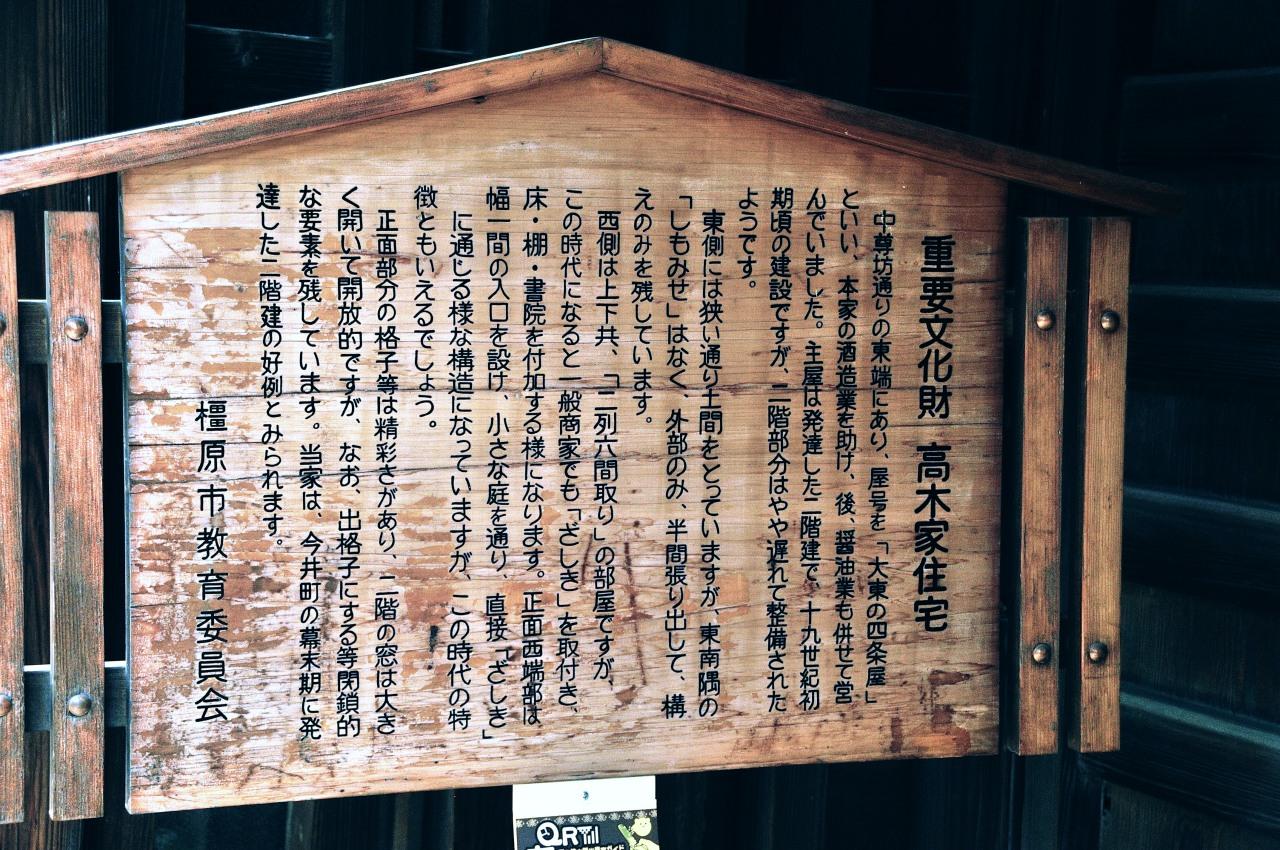 重要文化財 高木家住宅
中尊坊通りの東端にあり、屋号を「大東の四条屋」
といい、本家の酒造業を助け、後、醤油業も併せて営
んでいました。主屋は発達した二階建で、十九世紀初
期頃の建設ですが、二階部分はやや遅れて整備された
ようです。
東側には狭い通り土間をとっていますが、東南隅の
「しもみせ」はなく、外部のみ、半間張り出して、構
えのみを残しています。
西側は上下共、「二列六間取り」の部屋ですが、
この時代になると一般商家でも「ざしき」を取付き、
床・棚・書院を付加する様になります。正面西端部は
幅一間の入口を設け、小さな庭を通り、直接「ざしき」
に通じる様な構造になっていますが、この時代の特
徴ともいえるでしょう。
正面部分の格子等は精彩さがあり、二階の窓は大き
く開いて開放的ですが、なお、出格子にする等閉鎖的
な要素を残しています。当家は、今井町の幕末期に発
達した二階建の好例とみられます。
橿原市教育委員会
QR